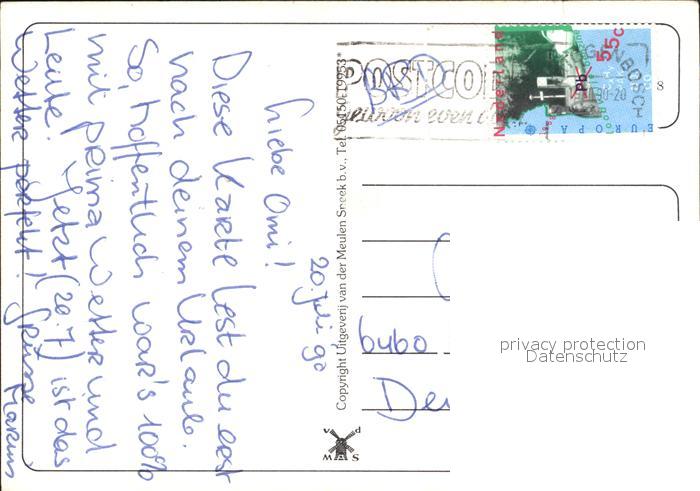 20. Juli 90
Liebe Omi!
Diese Karte lest du erst
nach deinem Urlaub.
So, hoffentlich war's 100%
mit prima Wetter und
Leute. Jetzt (20.7) ist das
Wetter perfekt! Grüsse
Copyright Uitgeverij van der Meulen Sneek b.v., Tel. 05150-19953*
POSTCO
even
Nederland
55c
Pb
EUROPA
BOSCH
8
6460
De
v d
W M S
privacy protection
Datenschutz